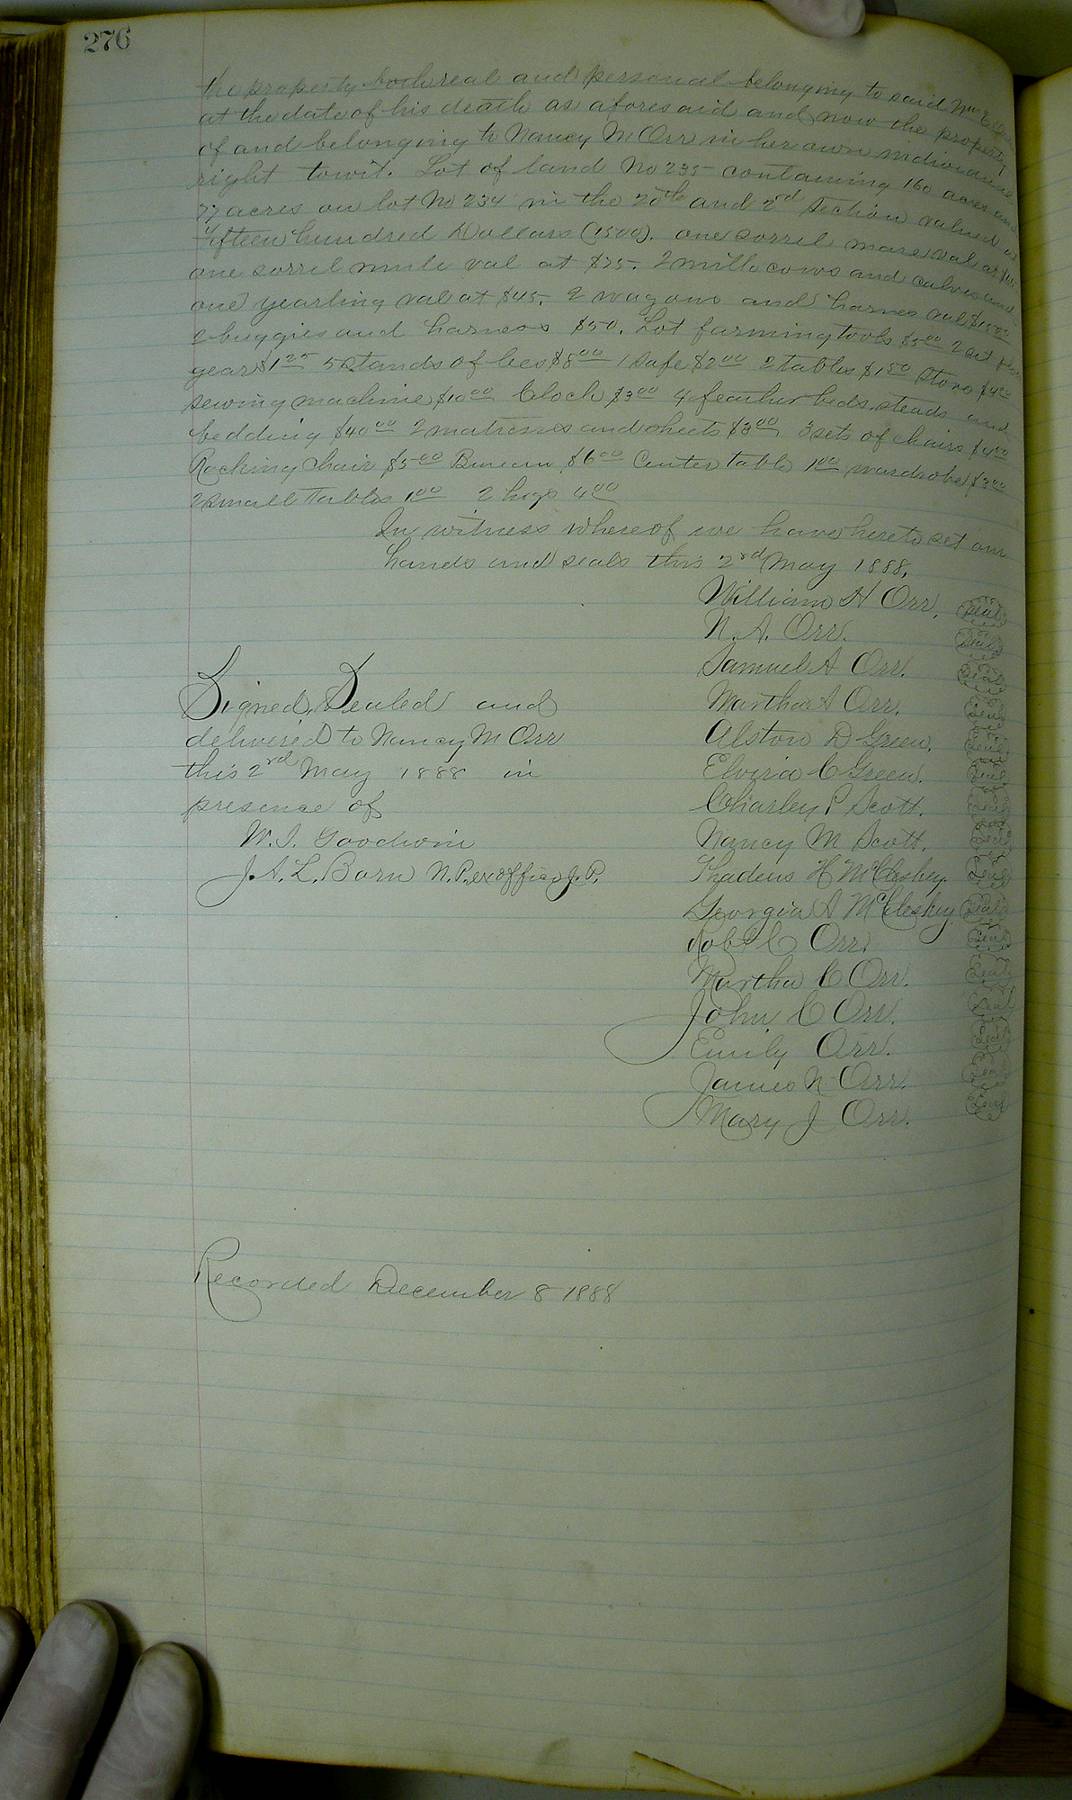 276
the property both real and personal belonging to said Wm E
at the date of his death as aforesaid and now the property
of and belonging to Nancy M Orr in her own individual
right towit. Lot of land No 235 containing 160 acres and
77 acres on lot No 234 in the 20th and 2nd Section valued at
fifteen hundred Dollars (1500). one sorrel mare val at
one sorrel mule val at $75. 2 milk cows and calves and
one yearling val at $45. 2 wagons and harness val
2 buggies and harness $50. Lot farming tools $5.00 2 set
gear $1.25 5 Stands of bees $8.00 1 Safe $2.00 2 tables $1.50 Stove $4.00
sewing machine $10.00 Clock $3.00 4 feather beds, steads and
bedding $40.00 2 matresses and sheets $3.00 3 sets of chairs $4.50
Rocking Chair $5.00 Bureau $6.00 Center table 1.00 wardrobe $3.00
2 small Tables 1.00 2 hogs 4.00
In witness whereof we have hereto set our
hands and seals this 2nd May 1888.
William H Orr. Seal
N. A. Orr. Seal
Samuel A Orr. Seal
Signed, Sealed and
delivered to Nancy M Orr
this 2nd May 1888 in
presence of
W. I. Goodwin
J. A. L. Born N.P. exofficio J.P.
Martha A Orr. Seal
Alston D Green. Seal
Elvira C Green. Seal
Charley P Scott. Seal
Nancy M Scott. Seal
Thadeus H McCleskey. Seal
Georgia A McCleskey Seal
Robt C Orr. Seal
Martha C Orr. Seal
John C Orr. Seal
Emily Orr. Seal
James N Orr. Seal
Mary J Orr. Seal
Recorded December 8 1888